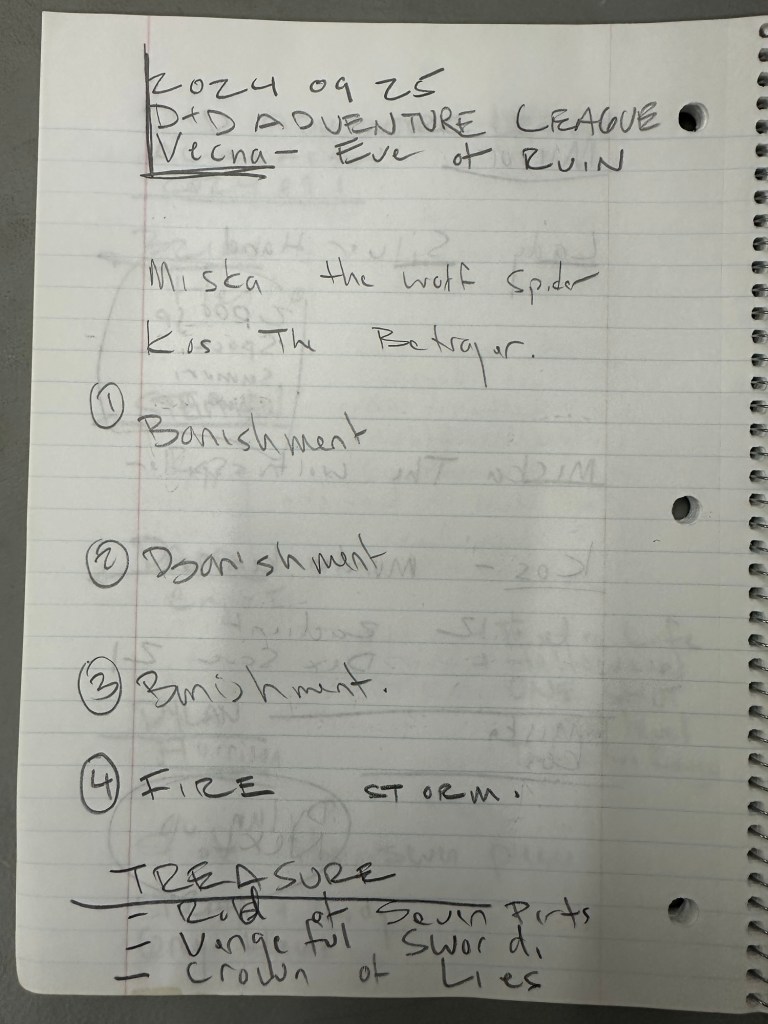 2024 09 25
D+D ADVENTURE LEAGUE
Vecna - Eve of RUIN
Miska the wolf Spider
Kas The Betrayer.
① Banishment
② Banishment
③ Banishment.
④ FIRE STORM.
TREASURE
- Rod of Seven Parts
- Vengeful Sword,
- Crown of Lies